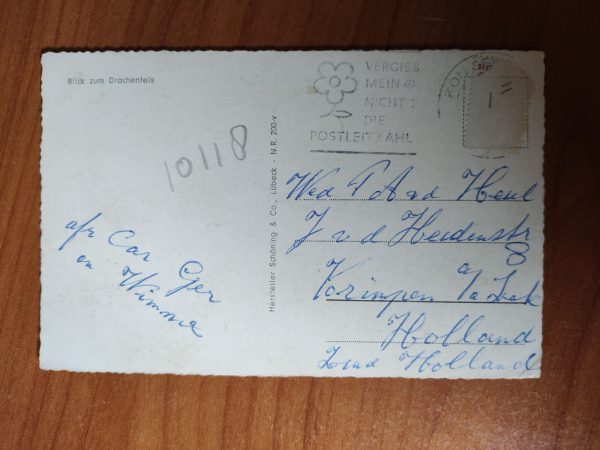 Blick zum Drachenfels
VERGISS
MEIN
NICHT:
DIE
POSTLEITZAHL
1
=
10118
Hersteller Schöning & Co., Lübeck - N.R. 200-v
afz Car Ger
en Wimma
Wed P A v d Heul
J v d Heidenstr
8
Krimpen a/d Lek
Holland
Zuid Holland